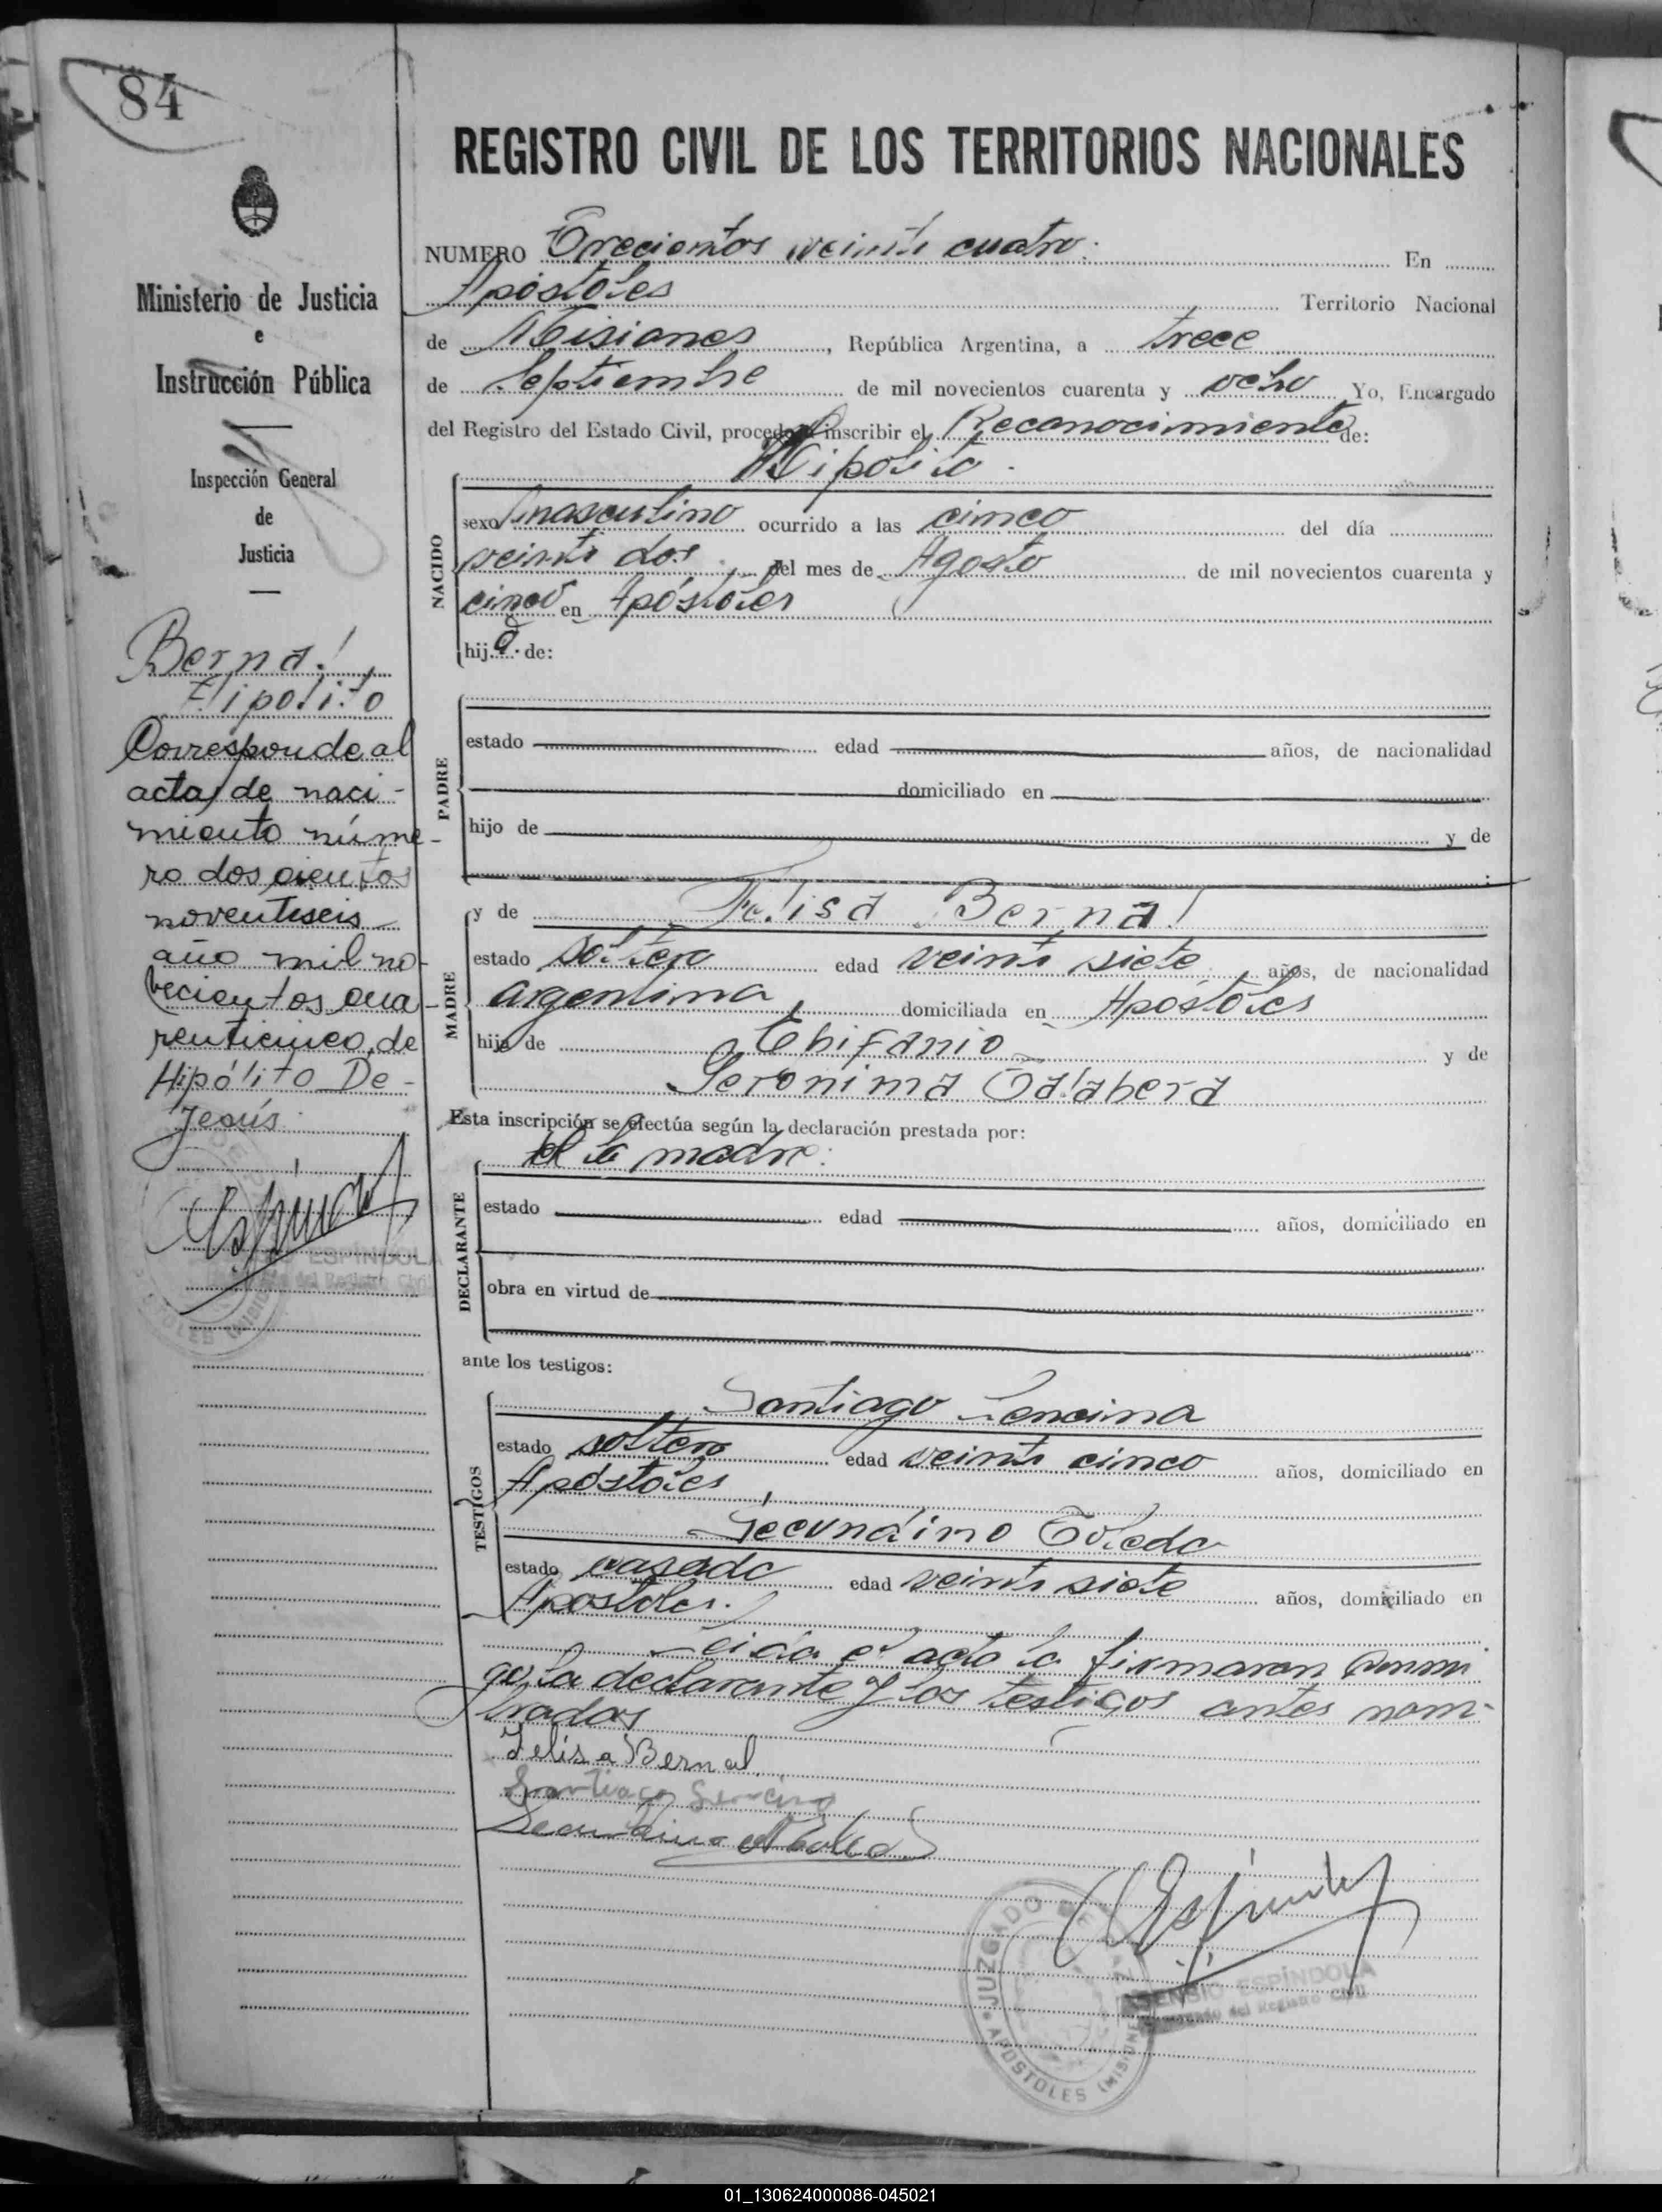 84
REGISTRO CIVIL DE LOS TERRITORIOS NACIONALES
Ministerio de Justicia
e
Instrucción Pública
Inspección General
de
Justicia
Bernal
Hipolito
Corresponde al
acta de naci-
miento núme-
ro doscientos
noventiseis
año mil no-
vecientos cua-
renticinco, de
Hipólito De-
Jesús.
ESPÍNDOLA
del Registro Civil
NUMERO Trecientos veinte cuatro. En
Apóstoles Territorio Nacional
de Misiones, República Argentina, a trece
de Septiembre de mil novecientos cuarenta y ocho Yo, Encargado
del Registro del Estado Civil, procedo a inscribir el Reconocimiento de:
Hipolito.
NACIDO
sexo masculino ocurrido a las cinco del día
veinti dos del mes de Agosto de mil novecientos cuarenta y
cinco en Apóstoles
hijo de:
PADRE
estado edad años, de nacionalidad
domiciliado en
hijo de y de
MADRE
y de Felisa Bernal
estado soltera edad veinti siete años, de nacionalidad
argentina, domiciliada en Apóstoles
hija de Epifanio y de
Geronima Talabera
Esta inscripción se efectúa según la declaración prestada por:
la madre.
DECLARANTE
estado edad años, domiciliado en
obra en virtud de
ante los testigos:
TESTIGOS
Santiago Lencina
estado soltero edad veinti cinco años, domiciliado en
Apóstoles,
Secundino Toledo
estado casado edad veinti siete años, domiciliado en
Apostoles.
Leida el acta la firmaron conmi
go la declarante y los testigos antes nom-
brados
Felisa Bernal
Santiago Lencina
Secundino Toledo
JUZGADO DE PAZ
APOSTOLES (MISIONES)
ASENSIO ESPÍNDOLA
Encargado del Registro Civil
01_130624000086-045021